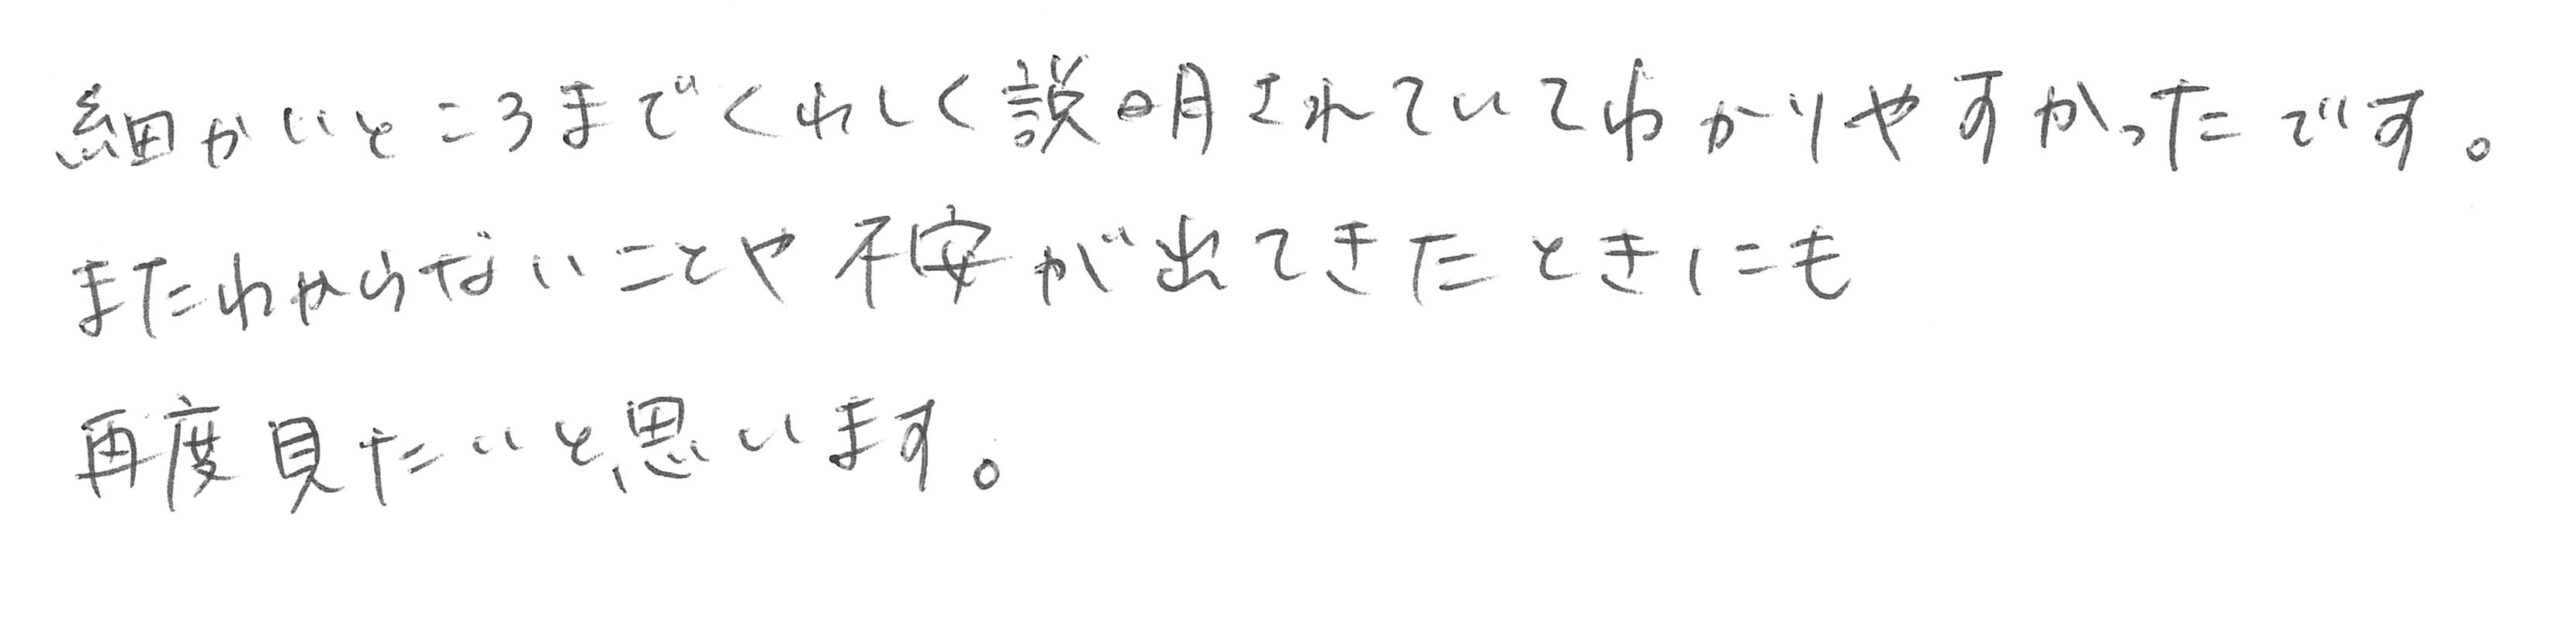 細かいところまでくわしく説明されていてわかりやすかったです。
またわからないことや不安が出てきたときにも
再度見たいと思います。